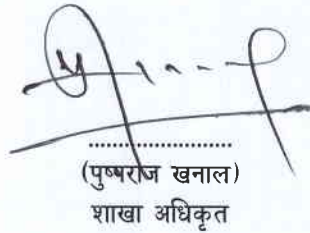 ....................
(पुष्पराज खनाल)
शाखा अधिकृत